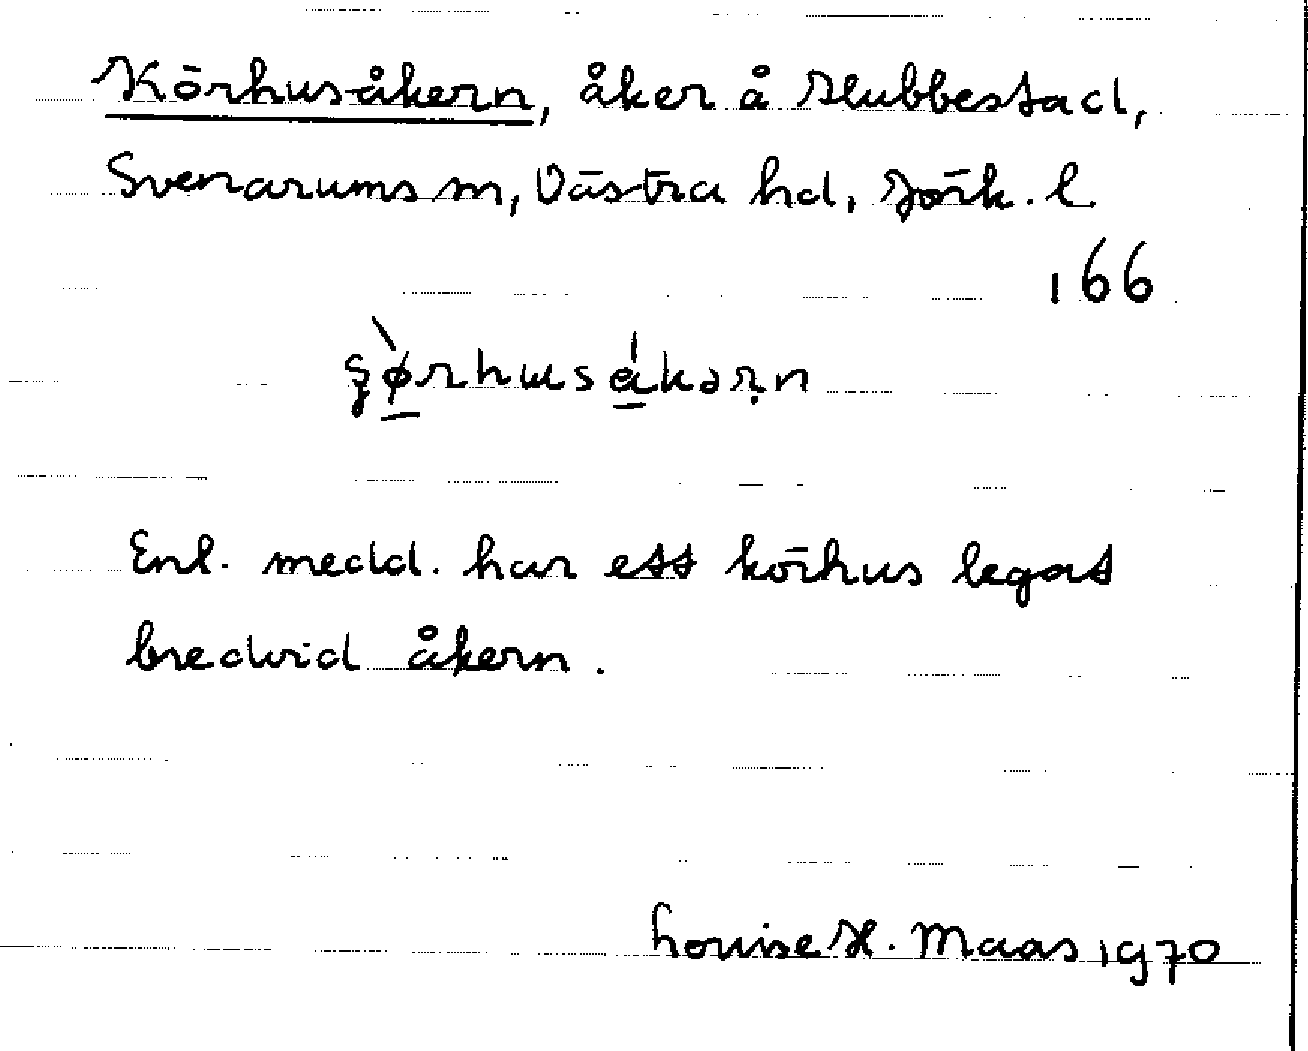 Körhusåkern, åker å Slubbestad,
Svenarums sn, Västra hd, Jönk. l.
166
Enl. medd. har ett körhus legat
bredvid åkern.
Louise H. Maas 1970